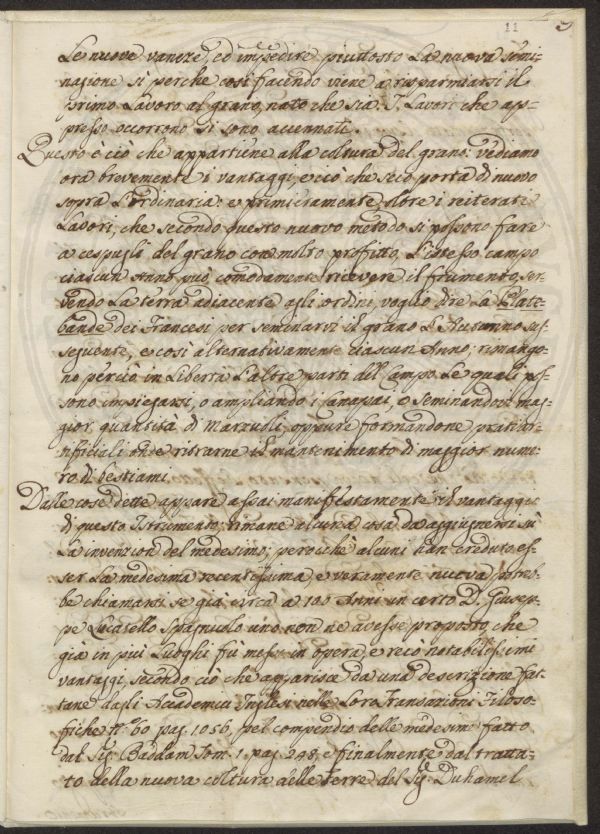 11
Le nuove vaneze, ed impedire piuttosto La nuova semi-
nagione si perche così facendo viene a risparmiarsi il
primo Lavoro al grano, nato che sia. I. Lavori che ap-
presso occorrono si sono accennati.
Questo è ciò che appartiene alla coltura del grano: vediamo
ora brevemente i vantaggi, e ciò che seco porta di nuovo
sopra L'ordinaria: e primieramente oltre i reiterati
Lavori, che secondo questo nuovo metodo si possono fare
a cespugli del grano con molto proffitto, L'istesso campo
ciascun Anno può comodamente ricevere il frumento, ser-
vendo La terra adiacente agli ordini, voglio dire La Plate-
bande dei Francesi per seminarvi il grano L'Autunno sus-
seguente, e così alternativamente ciascun Anno; rimango-
no perciò in Libertà L'altre parti del Campo Le quali pos-
sono impiegarsi, o ampliando i Canapai, o Seminandovi mag-
gior quantità di Marzulli, oppure formandone prati ar-
tificiali onde ritrarne il mantenimento di maggior nume-
ro di bestiami.
Dalle cose dette appare assai manifestamente il vantaggio
di questo Istrumento; rimane alcuna cosa da aggiugnervi sù
La invenzion del medesimo; perocchè alcuni han creduto es-
ser La medesima recentissima, e veramente nuova potreb-
be chiamarsi se già circa a 100 Anni un certo D. Giusep-
pe Lucatello Spagnuolo uno non ne avesse proposto, che
già in più Luoghi fu messo in opera, e recò notabilissimi
vantaggi, secondo ciò che apparisce da una descrizione fat-
tane dagli Accademici Inglesi nelle Loro Transazioni Filoso-
fiche N.° 60 pag. 1056, pel compendio delle medesime fatto
dal Sig. Baddam Tom. 1. pag. 248, e finalmente dal tratta-
to della nuova coltura delle terre del Sig. Duhamel